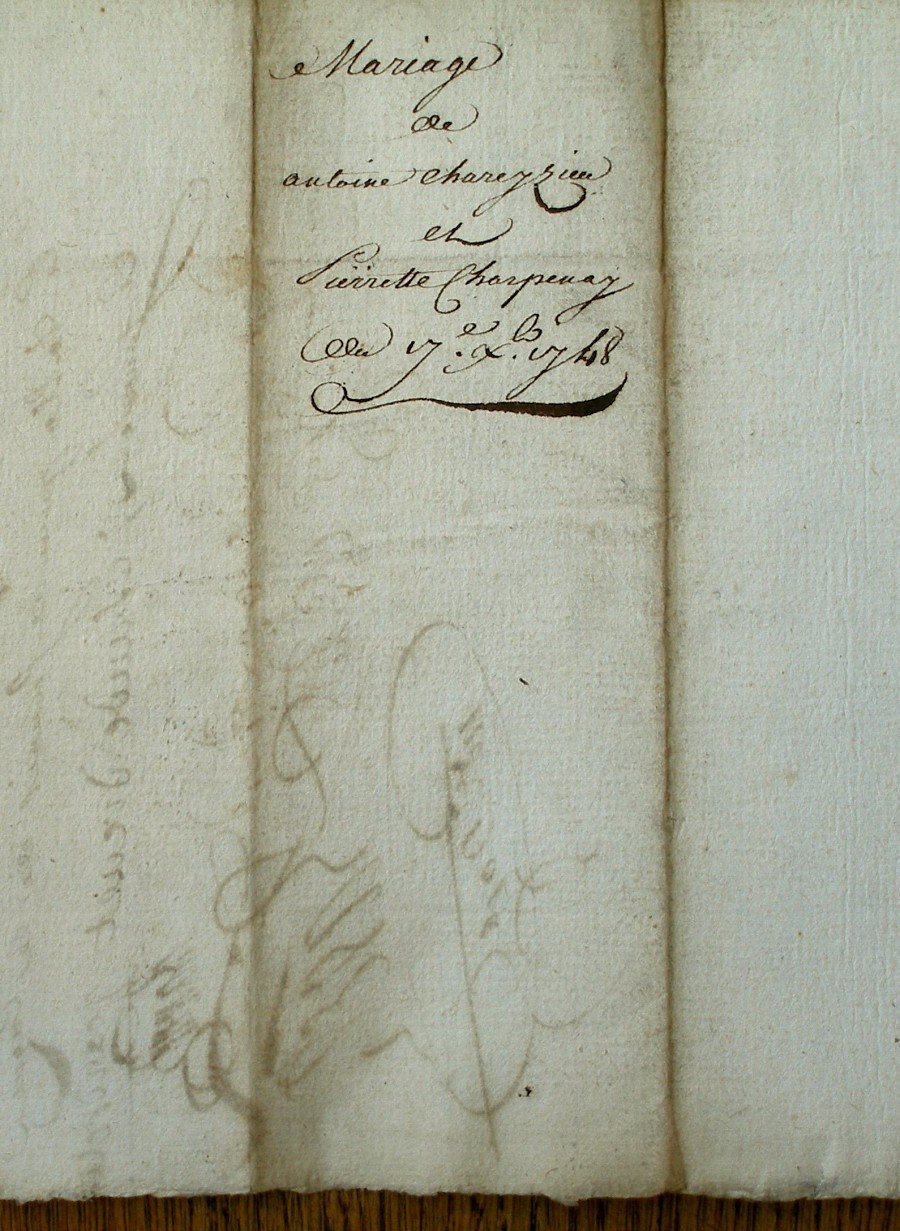 Mariage
de
antoine Chareyzieu
et
Pierrette Charpenay
du 17.e xb. 1748